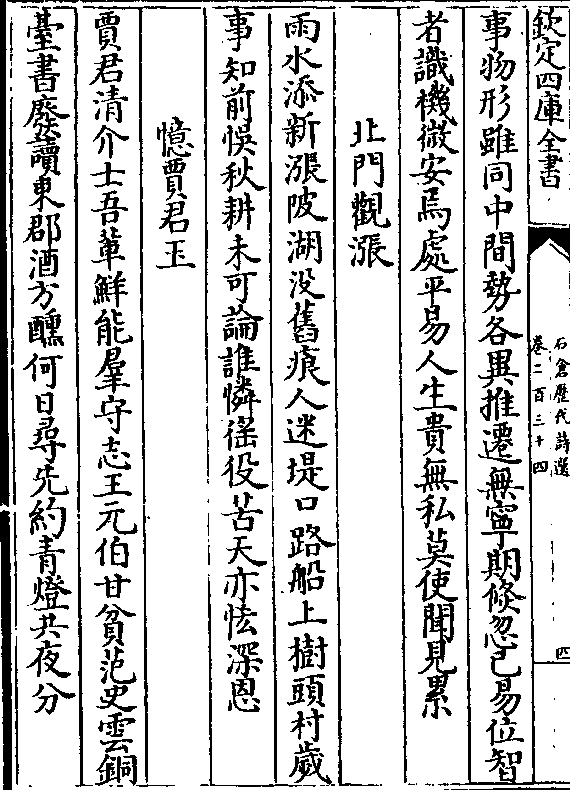 欽定四庫全書
石倉歷代詩選
卷二百三十四
四
事物形雖同中間勢各異推遷無寧期倏忽已易位智
者識機微安焉處平易人生貴無私莫使聞見累
北門觀漲
雨水添新漲陂湖没舊痕人迷堤口路船上樹頭村歲
事知前悞秋耕未可論誰憐徭役苦天亦恡深恩
憶賈君玉
賈君清介士吾軰鮮能羣守志王元伯甘貧范史雲銅
臺書廢讀東郡酒方醺何日尋先約青燈共夜分